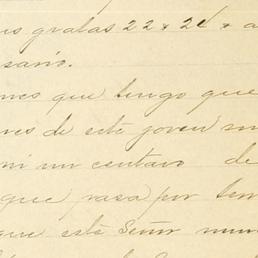 us gratas 22 & 24 & a
sario.
nes que tengo que
res de este joven m
ni un centavo de
que pasa por ten
que este Señor nun